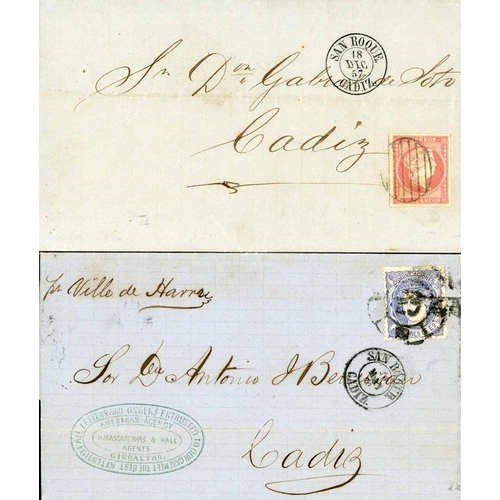 SAN ROQUE
18
DIC
57
CADIZ
Sr. Dn. Gabl. de Soto
Cadiz
pr Ville de Havre
SAN ROQUE
CADIZ
Sor Dn Antonio J Bensusan
ALL LETTERS AND ORDERS ENTRUSTED TO OUR CARE MEET THE BEST ATTENTION
AMERICAN AGENCY
H. MASCARENHAS & HALL
AGENTS
GIBRALTAR
Cadiz